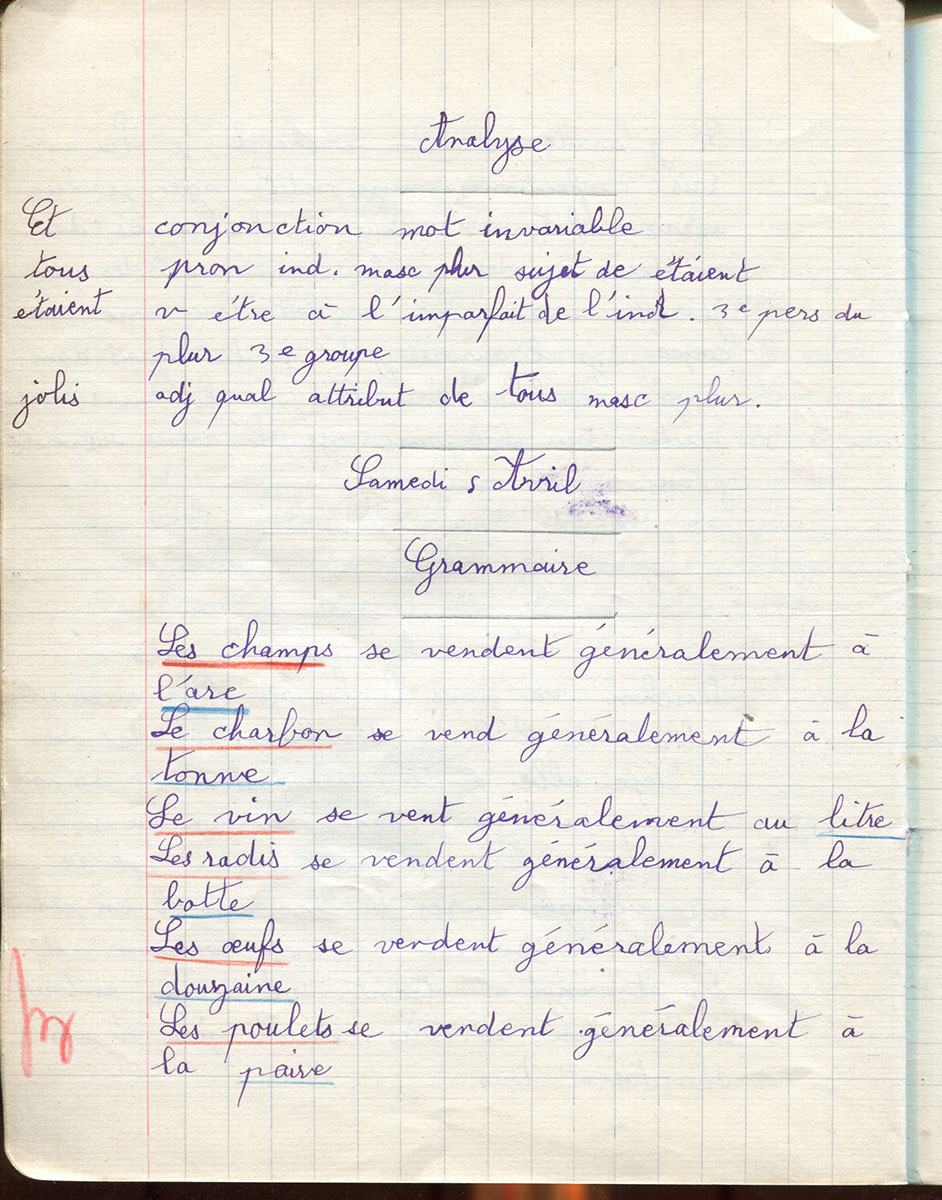 Analyse
Et conjonction mot invariable
tous pron ind. masc plur sujet de étaient
étaient v être à l'imparfait de l'ind. 3e pers du
plur 3e groupe
jolis adj qual attribut de tous masc plur.
Samedi 5 Avril
Grammaire
Les champs se vendent généralement à
l'are
Le charbon se vend généralement à la
tonne
Le vin se vent généralement au litre
Les radis se vendent généralement à la
botte
Les œufs se vendent généralement à la
douzaine
Les poulets se vendent généralement à
la paire